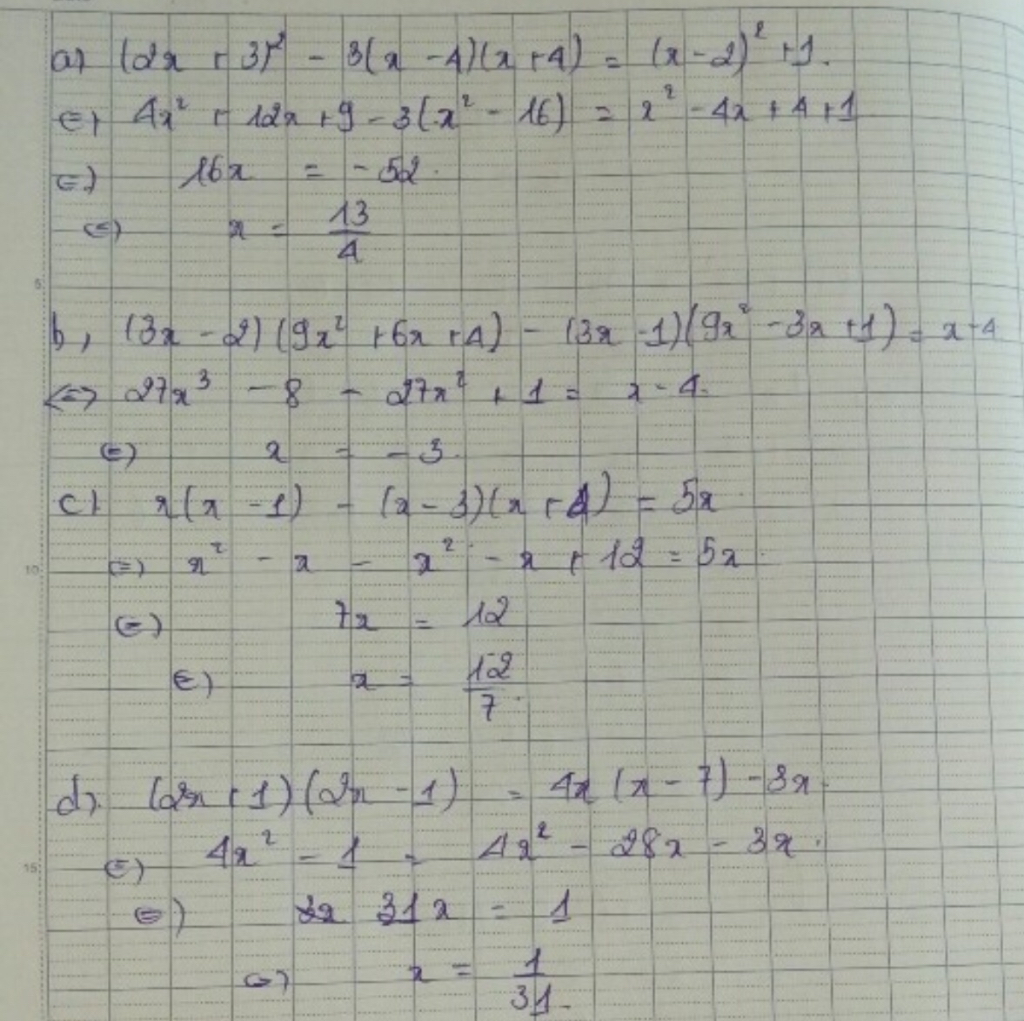 a) (2x + 3)² - 3(x - 4)(x + 4) = (x - 2)² + 1.
(=) 4x² + 12x + 9 - 3(x² - 16) = x² - 4x + 4 + 1
(=) 16x = - 52.
(=) x = 13/4
5
b, (3x - 2)(9x² + 6x + 4) - (3x - 1)(9x² - 3x + 1) = x - 4
<=> 27x³ - 8 - 27x² + 1 = x - 4.
(=) x = - 3.
c) x(x - 1) - (x - 3)(x + 4) = 5x
10 (=) x² - x - x² - x + 12 = 5x.
(=) 7x = 12
(=) x = 12/7.
d). (2x + 1)(2x - 1) = 4x(x - 7) - 3x.
15 (=) 4x² - 1 = 4x² - 28x - 3x.
(=) 31x = 1
(=) x = 1/31.